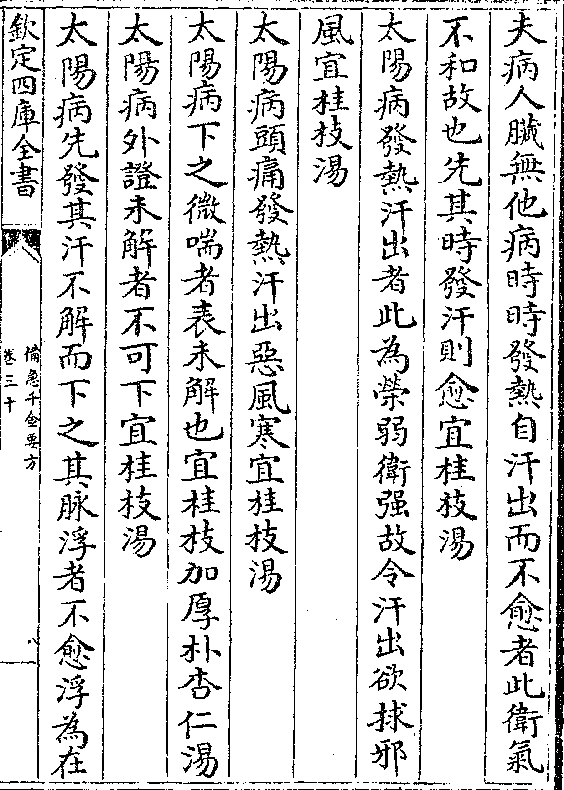 夫病人臟無他病時時發熱自汗出而不愈者此衛氣
不和故也先其時發汗則愈宜桂枝湯
太陽病發熱汗出者此為榮弱衛强故令汗出欲捄邪
風宜桂枝湯
太陽病頭痛發熱汗出惡風寒宜桂枝湯
太陽病下之微喘者表未解也宜桂枝加厚朴杏仁湯
太陽病外證未解者不可下宜桂枝湯
太陽病先發其汗不解而下之其脉浮者不愈浮為在
欽定四庫全書
備急千金要方
卷三十
八